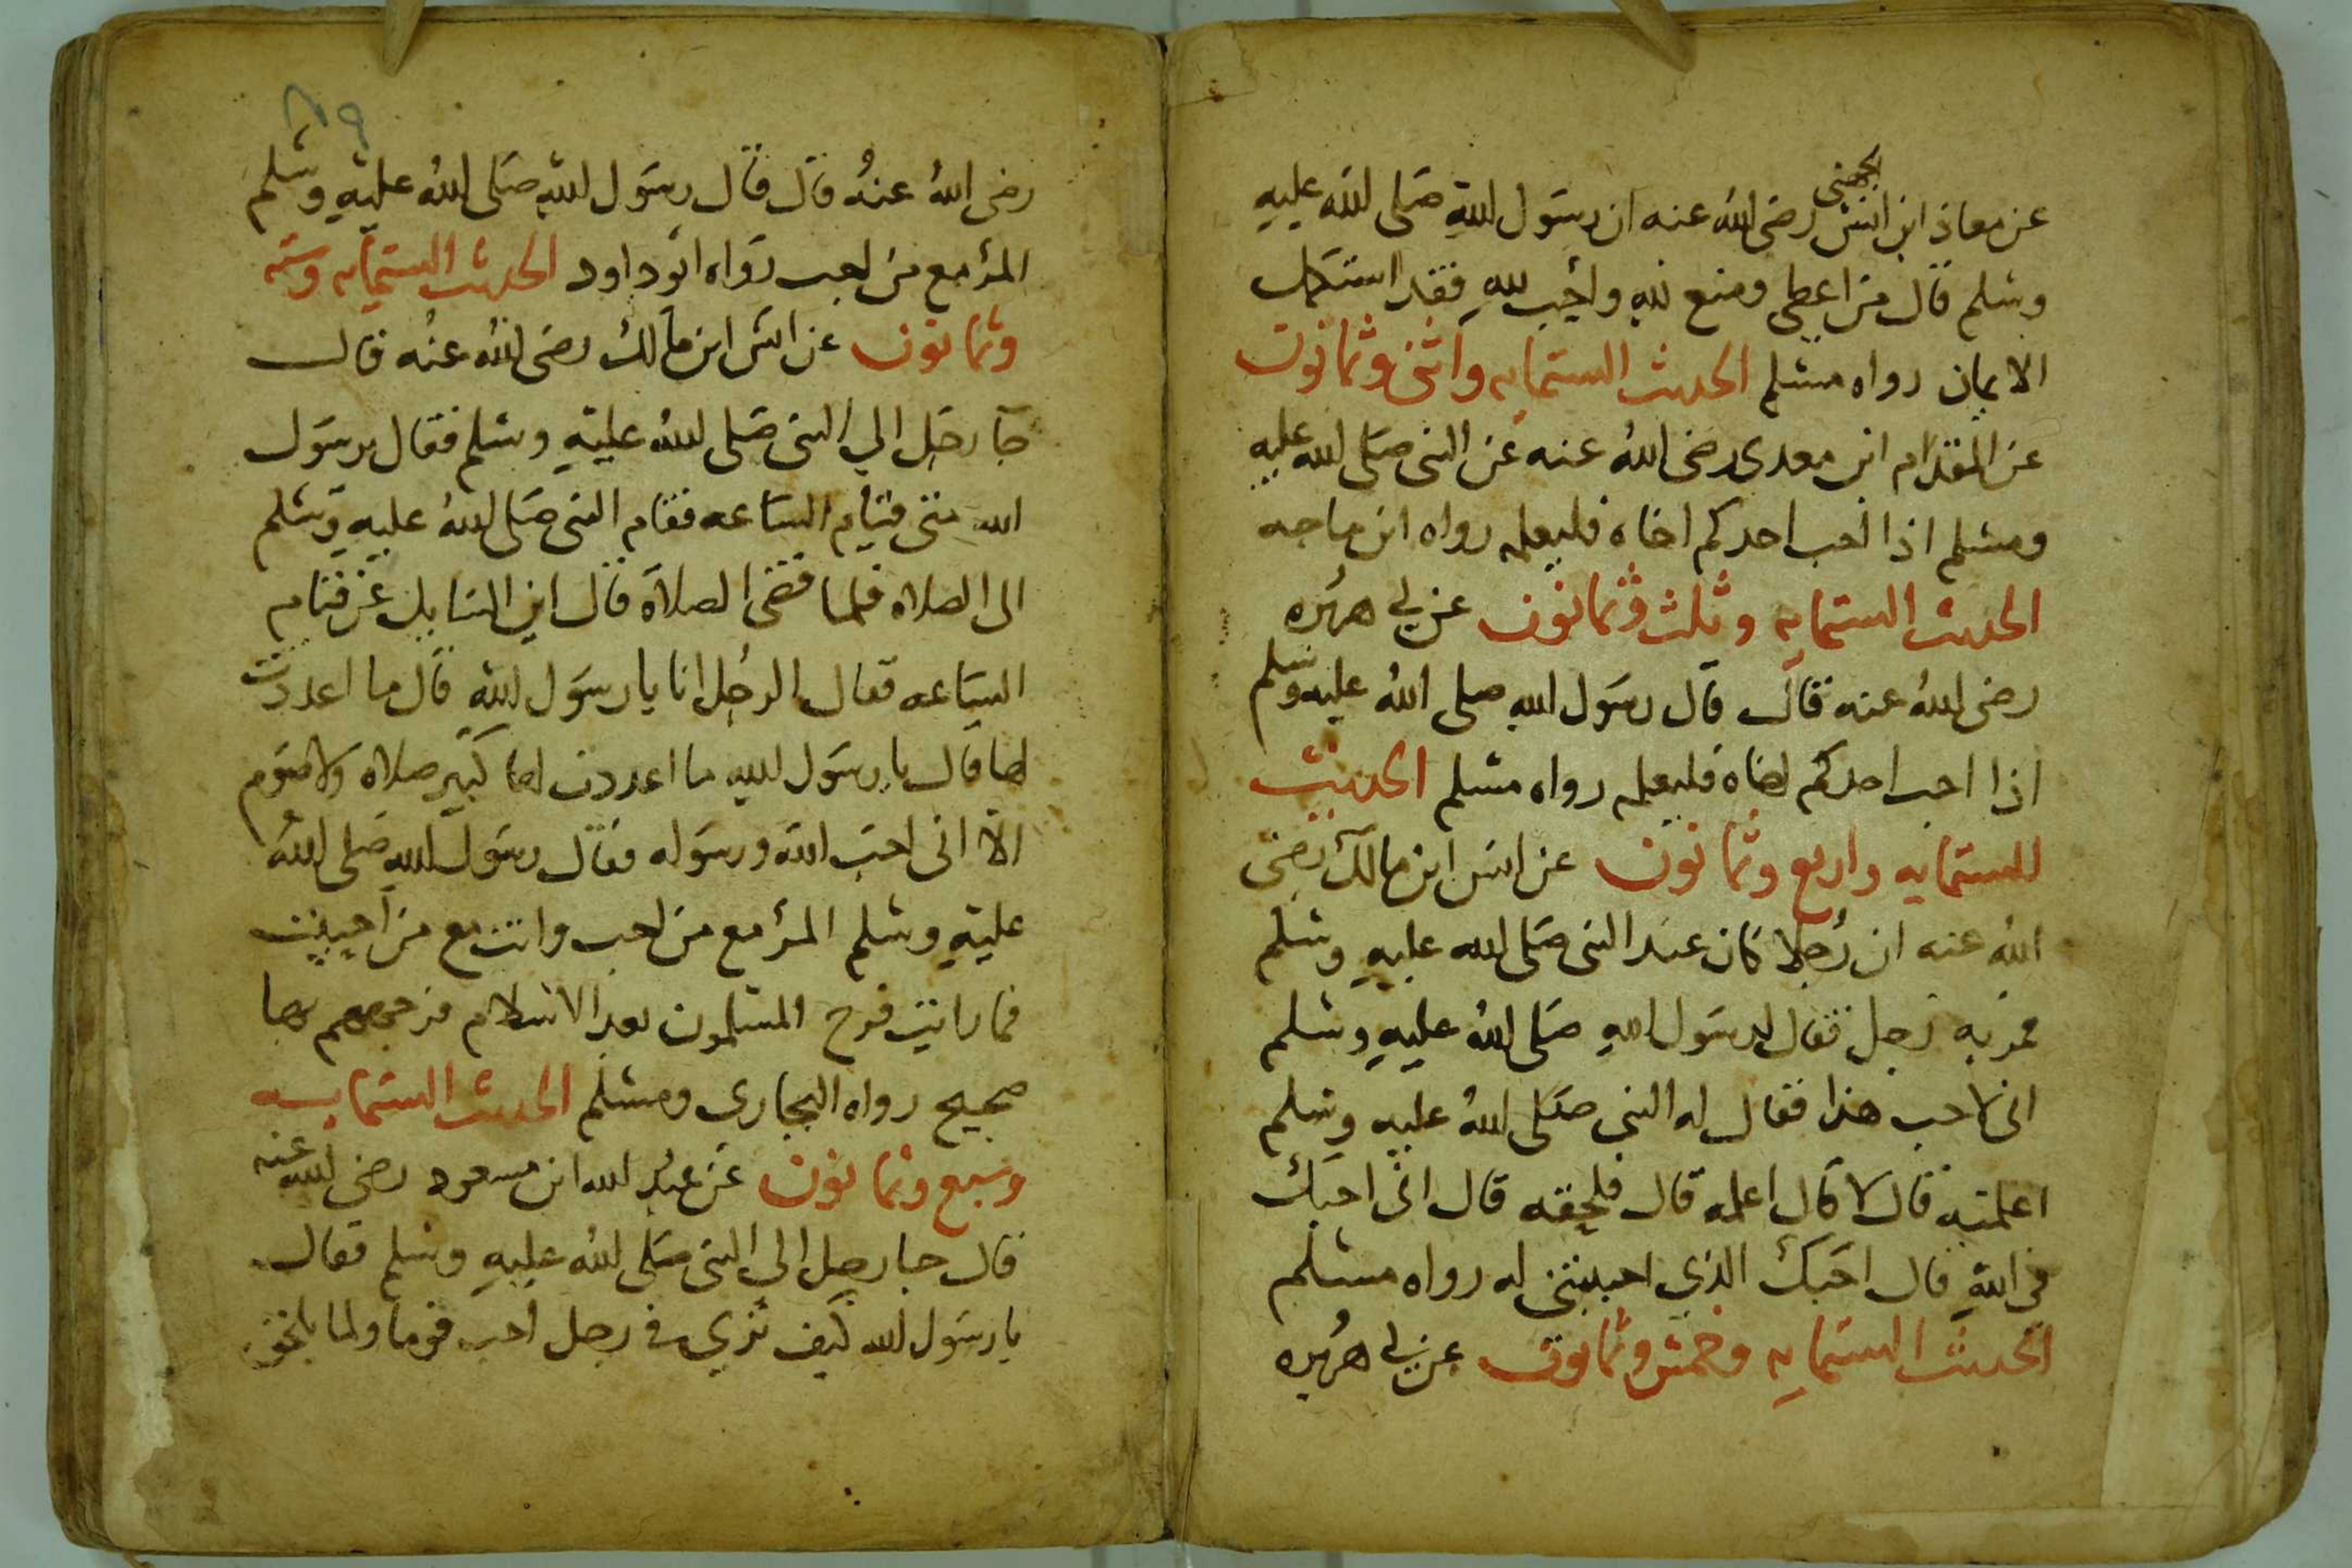 عن معاذ ابن انس الجهني رضى الله عنه ان رسول الله صلى الله عليه
وسلم قال من اعطى ومنع لله واحب لله فقد استكمل
الايمان رواه مسلم الحديث الستمايه واثنى وثمانون
عن المقدام ابن معدى رضى الله عنه عن النبى صلى الله عليه
ومسلم اذا احب احدكم اخاه فليعلمه رواه ابن ماجه
الحديث الستمايه وثلث وثمانون عن ابي هريره
رضى الله عنه قال قال رسول الله صلى الله عليه وسلم
اذا احب احدكم اخاه فليعلمه رواه مسلم الحديث
الستمايه واربع وثمانون عن انس ابن مالك رضى
الله عنه ان رجلا كان عند النبى صلى الله عليه وسلم
فمر به رجل فقال لرسول الله صلى الله عليه وسلم
انى لاحب هذا فقال له النبي صلى الله عليه وسلم
اعلمته قال لا قال اعلمه قال فلحقه قال انى احبك
في الله قال احبك الذي احببتنى له رواه مسلم
الحديث الستمايه وخمس وثمانون عن ابي هريره
٨٩
رضى الله عنه قال قال رسول الله صلى الله عليه وسلم
المرؤ مع من احب رواه ابو داود الحديث الستمايه وسته
وثمانون عن انس ابن مالك رضى الله عنه قال
جا رجل الي النبى صلى الله عليه وسلم فقال يرسول
الله متى قيام الساعه فقام النبى صلى الله عليه وسلم
الى الصلاه فلما قضى الصلاة قال اين السايل عن قيام
الساعه فقال الرجل انا يا رسول الله قال ما اعددت
لها قال يا رسول الله ما اعددت لها كبير صلاه ولا صوم
الا انى احب الله ورسوله فقال رسول الله صلى الله
عليه وسلم المرؤ مع من احب وانت مع من احببت
فما رايت فرح المسلمون بعد الاسلام فرحهم بها
صحيح رواه البخاري ومسلم الحديث الستمايه
وسبع وثمانون عن عبد الله ابن مسعود رضى الله عنه
قال جا رجل الي النبى صلى الله عليه وسلم فقال
يا رسول الله كيف ترى في رجل احب قوما ولما يلحق